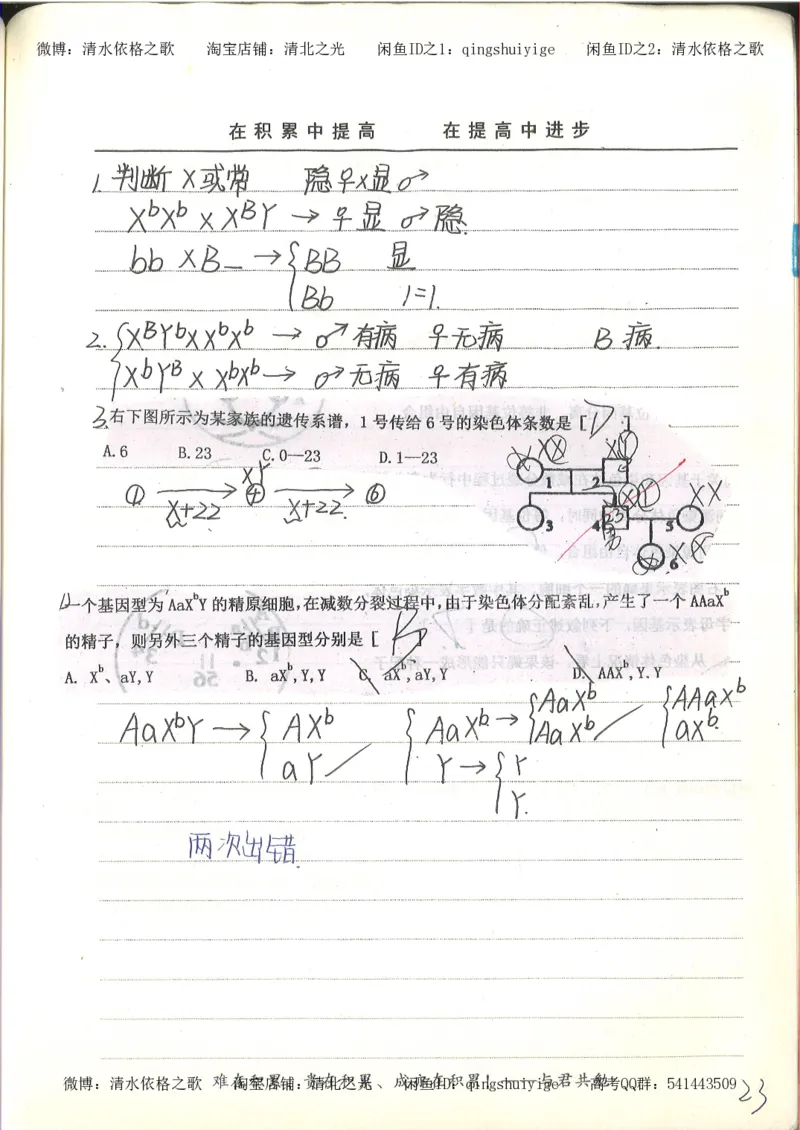 微博：清水依格之歌 淘宝店铺：清北之光 闲鱼ID之1：qingshuiyige 闲鱼ID之2：清水依格之歌
在积累中提高 在提高中进步
1. 判断 X或常 隐♀×显♂
XᵇXᵇ × XᴮY → ♀显 ♂隐.
bb × B_ → { BB 显
Bb 1=1.
2. { XᴮYᵇ × XᵇXᵇ → ♂有病 ♀无病 B病.
XᵇYᴮ × XᵇXᵇ → ♂无病 ♀有病
3. 右下图所示为某家族的遗传系谱，1号传给6号的染色体条数是 [D]
A.6 B.23 C.0—23 D.1—23
X X X X Y
1 2
① X+22 → XY ④ X+22 → ⑥
X Y X X
3 4 23 5
男
6 X X
一个基因型为 AaXᵇY 的精原细胞,在减数分裂过程中,由于染色体分配紊乱,产生了一个 AAaXᵇ
的精子，则另外三个精子的基因型分别是 [B]
A. Xᵇ、aY,Y B. aXᵇ,Y,Y C. aXᵇ,aY,Y D. AAXᵇ,Y.Y
AaXᵇY → { AXᵇ { AaXᵇ → { AaXᵇ { AAaXᵇ
aY Y → { Y AaXᵇ aXᵇ.
Y.
两次出错
微博：清水依格之歌 淘宝店铺：清北之光 闲鱼ID：qingshuiyige 高考QQ群：541443509
23